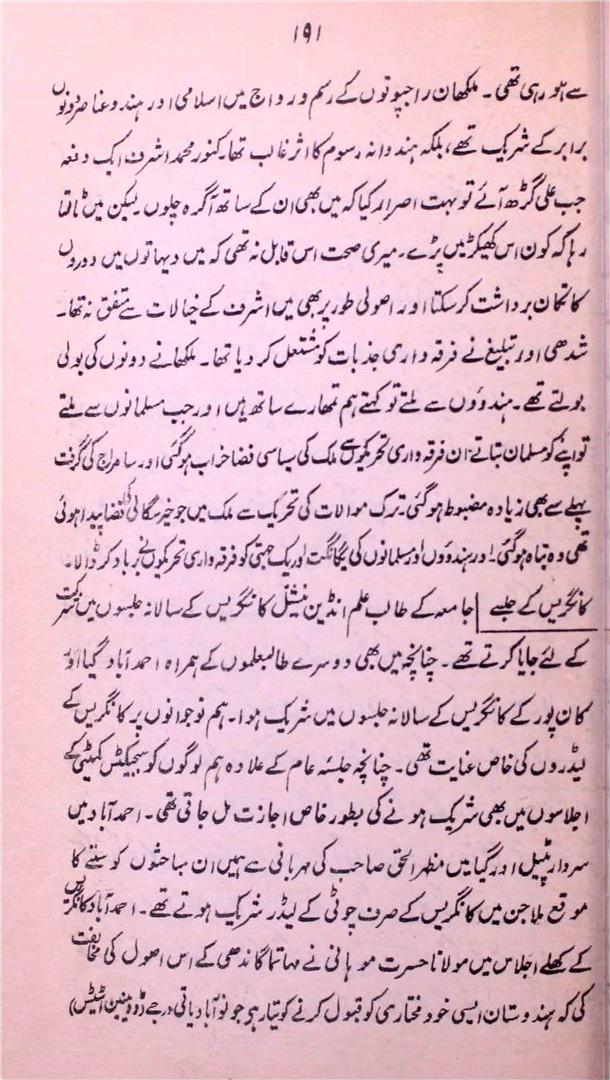 ۱۹۱
سے ہو رہی تھی۔ ملکھان راجپوتوں کے رسم و رواج میں اسلامی اور ہندو عناصر دونوں
برابر کے شریک تھے، بلکہ ہندوانہ رسوم کا اثر غالب تھا۔ کنور محمد اشرف ایک دفعہ
جب علی گڑھ آئے تو بہت اصرار کیا کہ میں بھی ان کے ساتھ آگرہ چلوں لیکن میں ٹالتا
رہا کہ کون اس کھکیڑ میں پڑے۔ میری صحت اس قابل نہ تھی کہ میں دیہاتوں میں دوروں
کا تکان برداشت کر سکتا اور اصولی طور پر بھی میں اشرف کے خیالات سے متفق نہ تھا۔
شدھی اور تبلیغ نے فرقہ واری جذبات کو مشتعل کر دیا تھا۔ ملکھانے دونوں کی بولی
بولتے تھے۔ ہندوؤں سے ملتے تو کہتے ہم تمھارے ساتھ ہیں اور جب مسلمانوں سے ملتے
تو اپنے کو مسلمان بتاتے۔ ان فرقہ واری تحریکوں سے ملک کی سیاسی فضا خراب ہو گئی اور سامراج کی گرفت
پہلے سے بھی زیادہ مضبوط ہو گئی۔ ترک موالات کی تحریک سے ملک میں جو خیر سگالی کی فضا پیدا ہوئی
تھی وہ تباہ ہو گئی۔ اور ہندوؤں اور مسلمانوں کی یگانگت اور یک جہتی کو فرقہ واری تحریکوں نے برباد کر ڈالا۔
کانگریس کے جلسے | جامعہ کے طالب علم انڈین نیشنل کانگریس کے سالانہ جلسوں میں شرکت
کے لئے جایا کرتے تھے۔ چنانچہ میں بھی دوسرے طالبعلموں کے ہمراہ احمد آباد گیا اور
کان پور کے کانگریس کے سالانہ جلسوں میں شریک ہوا۔ ہم نوجوانوں پر کانگریس کے
لیڈروں کی خاص عنایت تھی۔ چنانچہ جلسۂ عام کے علاوہ ہم لوگوں کو سبجیکٹس کمیٹی کے
اجلاسوں میں بھی شریک ہونے کی بطور خاص اجازت مل جاتی تھی۔ احمد آباد میں
سردار پٹیل اور گیا میں مظہر الحق صاحب کی مہربانی سے ہمیں ان مباحثوں کو سننے کا
موقع ملا جن میں کانگریس کے صرف چوٹی کے لیڈر شریک ہوتے تھے۔ احمد آباد کانگریس
کے کھلے اجلاس میں مولانا حسرت موہانی نے مہاتما گاندھی کے اس اصول کی مخالفت
کی کہ ہندوستان ایسی خود مختاری کو قبول کرنے کو تیار ہو جو نو آبادیاتی درجے (ڈومینین اسٹیٹس)